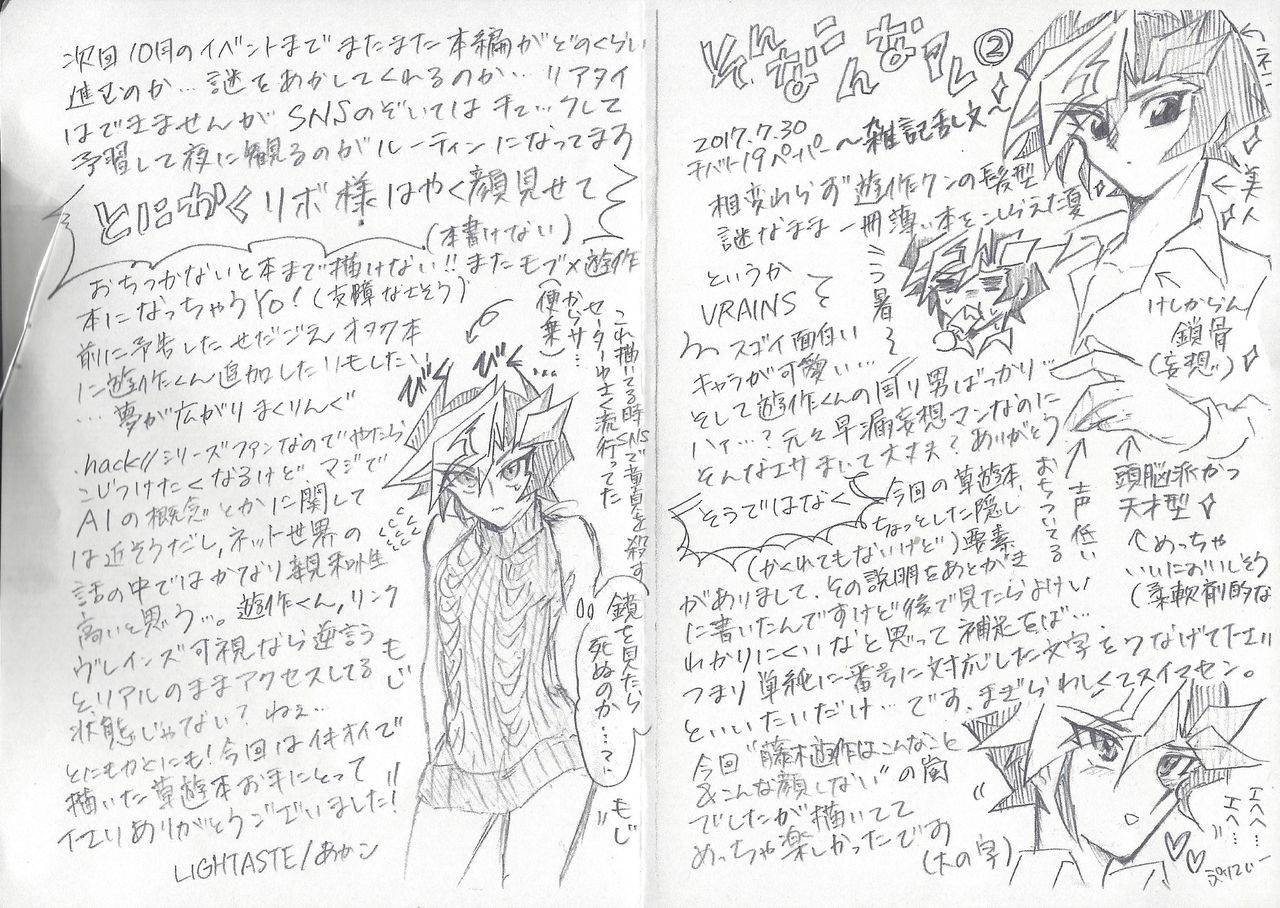 そんなこんなで ②
2017.7.30
チバト19ペーパー 〜雑記乱文〜
相変わらず遊作クンの髪型
謎なまま一冊薄い本をこしらえた夏
というか
VRAINS
スゴイ面白い
キャラが可愛い…
そして遊作くんの周り男ばっかりで
ハァ…?元々早漏妄想マンなのに
そんなエサまいて大丈夫?ありがとう
暑
美人
けしからん
鎖骨
(妄想)
声低い
おちついてる
頭脳派かつ
天才型
めっちゃ
いいにおいしそう
(柔軟剤的な
そうではなく
今回の草遊本、
ちょっとした隠し
(かくれてもないけど)要素
がありまして、その説明をあとがき
に書いたんですけど後で見たらよけい
わかりにくいなと思って補足をば…
つまり単純に番号に対応した文字をつなげてただ
といいたいだけ…です、まぎらわしくてスイマセン。
今回"藤木遊作はこんなこと
&こんな顔しない"の嵐
でしたが描いてて
めっちゃ楽しかったです
(大の字)
エヘヘ…
エヘ…
次回10月のイベントまでまたまた本編がどのくらい
進むのか…謎をあかしてくれるのか…リアタイ
はできませんがSNSのぞいては
予習して夜に観るのがルーティンになってます
とにかくリボ様はやく顔見せて
(本書けない)
おちつかないと本まで描けない!!またモブ×遊作
本になっちゃうYO!(支障なさそう)
前に予告したせだごえんオタク本
に遊作くん追加したりもしたい
…夢が広がりまくりんぐ
.hack//シリーズファンなのでやたら
こじつけたくなるけどマジで
AIの概念とかに関して
は近そうだし、ネット世界の
話の中ではかなり親和性
高いと思う…。遊作くん、リンク
ヴレインズ可視なら逆言う
と、リアルのままアクセスしてる
状態じゃない?ねぇ…
とにもかくにも!今回はイキオイで
描いた草遊本お手にとって
イタダキありがとうございました!!
LIGHTASTE/あかン
これ描いてる時SNSで童貞を殺す
セーターわさっと流行ってた
(便乗)
びく
びく…
鎖を見たら
死ぬのか…?
もじ
もじ